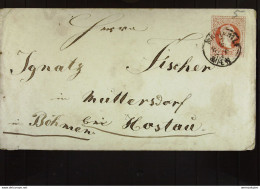 Herrn
Ignatz Fischer
in Muttersdorf
in Böhmen bei Hostau.
WIEN